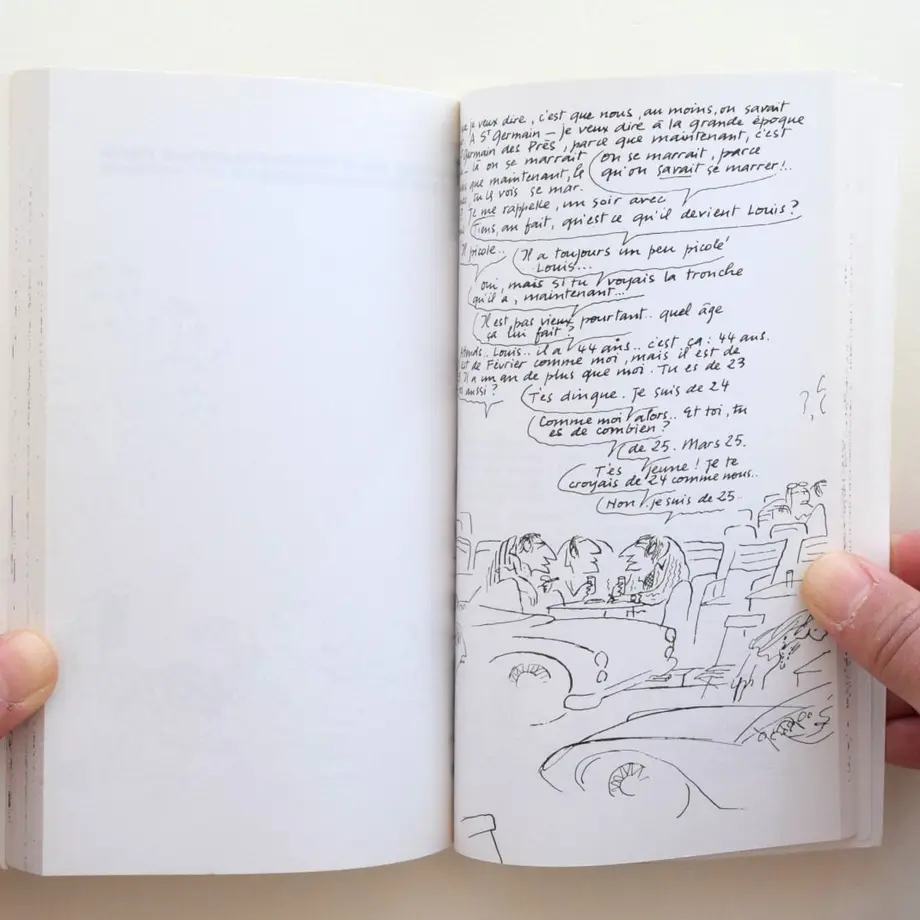 je veux dire, c'est que nous, au moins, on savait
A St Germain – je veux dire à la grande époque
Germain des Prés, parce que maintenant, c'est
– là on se marrait
que maintenant, le
tu les vois se mar.
on se marrait, parce
qu'on savait se marrer!..
Je me rappelle, un soir avec
Tiens, au fait, qu'est ce qu'il devient Louis?
Il picole..
Il a toujours un peu picolé
Louis...
oui, mais si tu voyais la tronche
qu'il a, maintenant...
Il est pas vieux pourtant.. quel âge
ça lui fait?
Louis.. il a 44 ans.. c'est ça: 44 ans.
de Février comme moi, mais il est de
Il a un an de plus que moi. Tu es de 23
aussi?
T'es dingue. Je suis de 24
Comme moi alors.. Et toi, tu
es de combien?
de 25. Mars 25.
T'es jeune! Je te
croyais de 24 comme nous..
Non. je suis de 25..